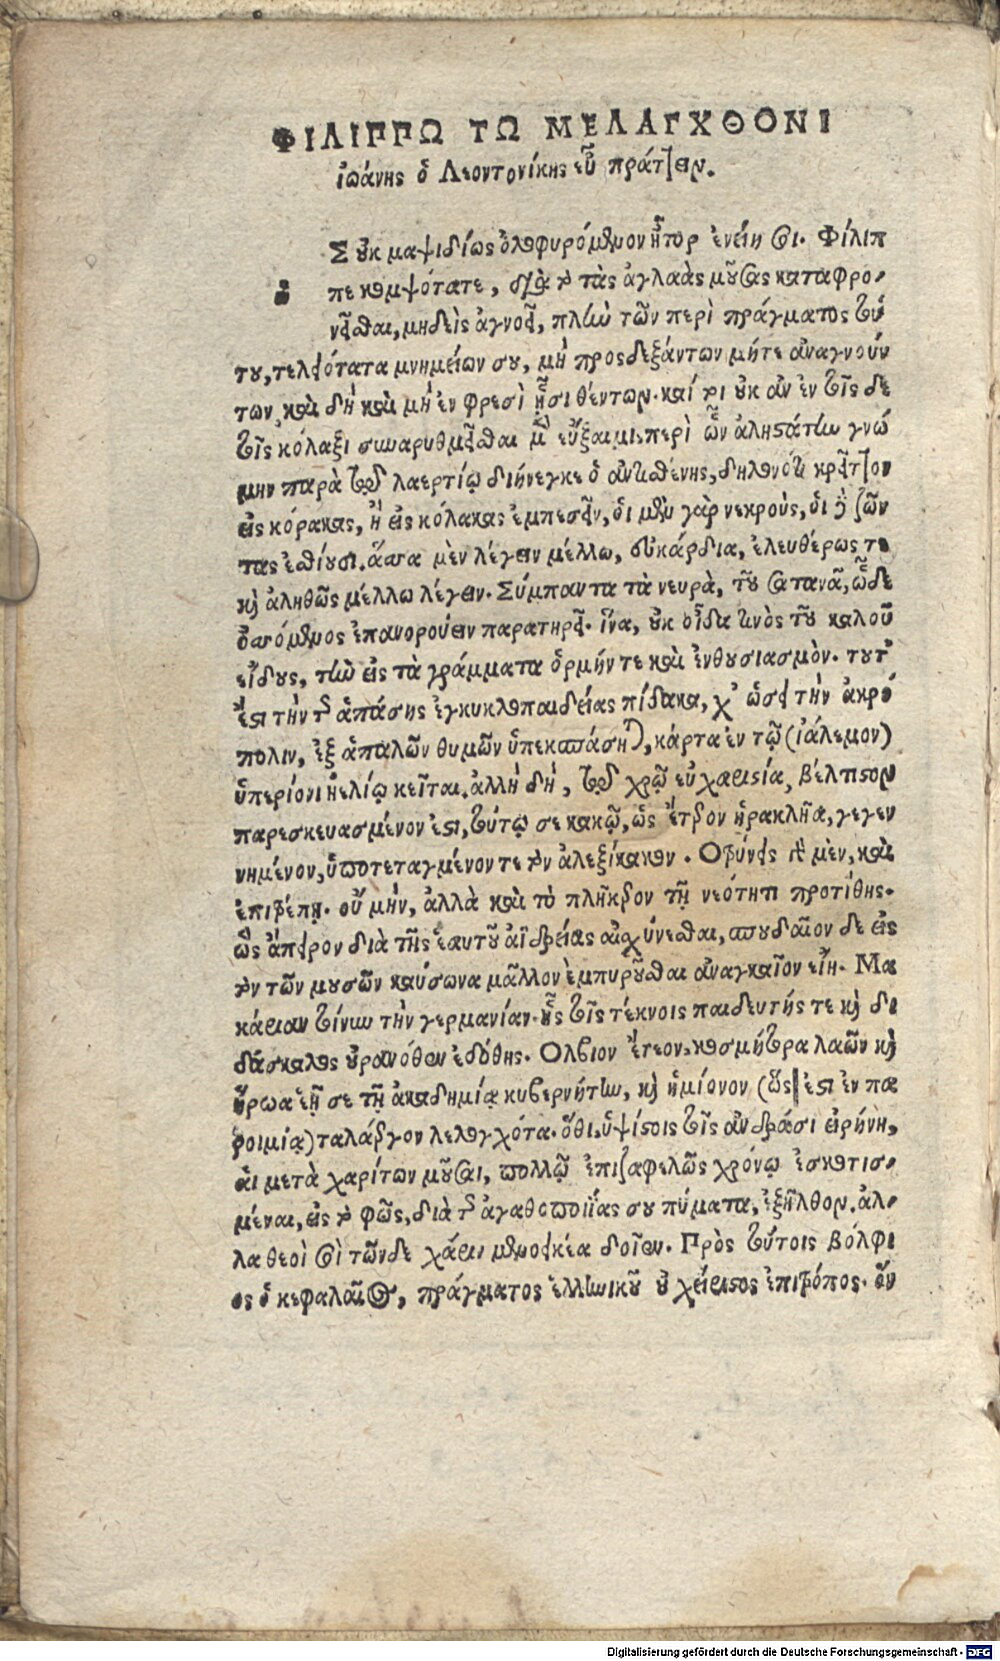 ΦΙΛΙΠΠΩ ΤΩ ΜΕΛΑΓΧΘΟΝΙ
ἰωάνης ὁ Λεοντονίκης εὖ πράτ]ειν.
ΟΣ οὐκ μαψιδίως ὀλοφυρόμενον ἦτορ ἐνείη σοι. Φίλιπ
πε κομψότατε, διὰ τὸ τὰς ἀγλαὰς μούσας καταφρο-
νεῖσθαι, μηδεὶς ἀγνοεῖ, πλὴν τῶν περὶ πράγματος τού
του, τελειότατα μνημείων σου, μὴ προςδεξάντων μήτε ἀναγνούν
των, καὶ δὴ καὶ μὴ ἐν φρεσὶ ᾗσι θέντων. καί τοι οὐκ ἂν ἐν τοῖς δε
τοῖς κόλαξι συναρυθμεῖσθαι μ' εὔξαιμι. περὶ ὧν ἀληστάτην γνώ
μην παρὰ τῷ λαερτίῳ διήνεγκε ὁ ἀντισθένης, δηλονότι κρεῖτ]ον
εἰς κόρακας, ἢ εἰς κόλακας ἐμπεσεῖν, οἱ μὲν γὰρ νεκροὺς, οἱ δὲ ζῶν
τας ἐσθίουσι. ἅσσα μὲν λέγειν μέλλω, εὐκάρδια, ἐλευθέρως τε
καὶ ἀληθῶς μέλλω λέγειν. Σύμπαντα τὰ νευρὰ, τοῦ σατανᾶ, ὧδε
ἐπανορούειν παρατηρεῖ. ἵνα, οὐκ οἶδα τινὸς τοῦ καλοῦ
εἴδους, τὴν εἰς τὰ γράμματα ὁρμήν τε καὶ ἐνθουσιασμὸν. τουτ'
ἔστι τὴν τῆς ἁπάσης ἐγκυκλοπαιδείας πίδακα, χ' ὡσεὶ τὴν ἀκρό
πολιν, ἐξ ἁπαλῶν θυμῶν ὑπεκσπάσῃ, κάρτα ἐν τῷ (ἰάλεμον)
ὑπερίονι ἠελίῳ κεῖται. ἀλλὴ δὴ, τῷ χρῷ εὐχαριστία, βέλτιστον
παρεσκευασμένον ἐστι, τούτῳ σε κακῷ, ὡς ἕτερον ἡρακλῆα, γεγεν
νημένον, ὑποτεταγμένον τε τὸν ἀλεξίκακον. Οτρύνεις μὲν, καὶ
ἐπιτρέπῃ. οὐ μὴν, ἀλλὰ καὶ τὸ πλῆκτρον τῇ νεότητι προτίθης.
ὡς ἄπειρον διὰ τῆς ἑαυτοῦ ἀϊδρείας αἰσχύνεσθαι, σπουδαῖον δε εἰς
τὸν τῶν μουσῶν καύσωνα μᾶλλον ἐμπυροῦσθαι ἀναγκαῖον εἴη. Μα
κάριαν τοίνυν τὴν γερμανίαν. ἧς τοῖς τέκνοις παιδευτής τε καὶ δι
δάσκαλος οὐρανόθεν ἐδόθης. Ολβιον ἔτεον, κοσμήτορα λαῶν καὶ
ἥρωα ἑῇ σε τῇ ἀκαδημίᾳ κυβερνήτην, καὶ ἡμίονον (ὥς| ἐστι ἐν πα
ροιμίᾳ) ταλάεργον λελογχότα. ὅθι, ὑψίστοις τοῖς ἀνδράσι εἰρήνη,
αἱ μετὰ χαρίτων μοῦσαι, πολλῷ ἐπιζαφελῶς χρόνῳ ἐσκοτισ-
μέναι, εἰς τὸ φῶς, διὰ τῆς ἀγαθοποιΐας σου ἐξῆλθον. ἀλ-
λα θεοὶ σοὶ τῶνδε χάριν μενοεικέα δοῖεν. Πρὸς τούτοις βόλφι
ος ὁ κεφαλαῖος, πράγματος ἑλληνικοῦ οὐ χείριστος ἐπιτρόπος. ὃν
Digitalisierung gefördert durch die Deutsche Forschungsgemeinschaft - DFG